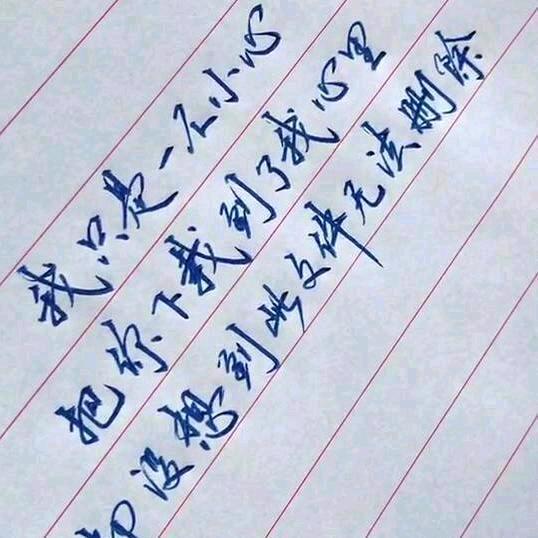 我只是一不小心
把你下载到了我心里
却没想到此文件无法删除